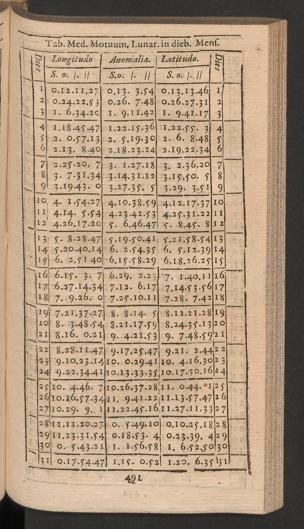 Tab. Med. Motuum, Lunar. in dieb. Mens.
Dies Longitudo Anomalia. Latitudo. Dies
S. o. |. || S.o. |. || S. o. |. ||
1 0.12.11.27 0.13. 3.54 0.13.13.46 1
2 0.24.22.53 0.26. 7.48 0.26.27.31 2
3 1. 6.34.20 1. 9.11.42 1. 9.41.17 3
4 1.18.45.47 1.22.15.36 1.22.55. 3 4
5 2. 0.57.13 2. 5.19.30 2. 6. 8.48 5
6 2.13. 8.40 2.18.23.24 2.19.22.34 6
7 2.25.20. 7 3. 1.27.18 3. 2.36.20 7
8 3. 7.31.34 3.14.31.12 3.15.50. 5 8
9 3.19.43. 0 3.27.35. 5 3.29. 3.51 9
10 4. 1.54.27 4.10.38.59 4.12.17.37 10
11 4.14. 5.54 4.23.42.53 4.25.31.22 11
12 4.26.17.20 5. 6.46.47 5. 8.45. 8 12
13 5. 8.28.47 5.19.50.41 5.21.58.54 13
14 5.20.40.14 6. 2.54.35 6. 5.12.39 14
15 6. 2.51.40 6.15.58.29 6.18.26.25 15
16 6.15. 3. 7 6.29. 2.23 7. 1.40.11 16
17 6.27.14.34 7.12. 6.17 7.14.53.56 17
18 7. 9.26. 0 7.25.10.11 7.28. 7.42 18
19 7.21.37.27 8. 8.14. 5 8.11.21.28 19
20 8. 3.48.54 8.21.17.59 8.24.35.13 20
21 8.16. 0.21 9. 4.21.53 9. 7.48.59 21
22 8.28.11.47 9.17.25.47 9.21. 2.44 22
23 9.10.23.14 10. 0.29.41 10. 4.16.30 23
24 9.22.34.41 10.13.33.35 10.17.30.16 24
25 10. 4.46. 7 10.26.37.28 11. 0.44. 1 25
26 10.16.57.34 11. 9.41.22 11.13.57.47 26
27 10.29. 9. 1 11.22.45.16 11.27.11.33 27
28 11.11.20.27 0. 5.49.10 0.10.25.18 28
29 11.23.31.54 0.18.53. 4 0.23.39. 4 29
30 0. 5.43.21 1. 1.56.58 1. 6.52.50 30
31 0.17.54.47 1.15. 0.52 1.20. 6.35 31
491